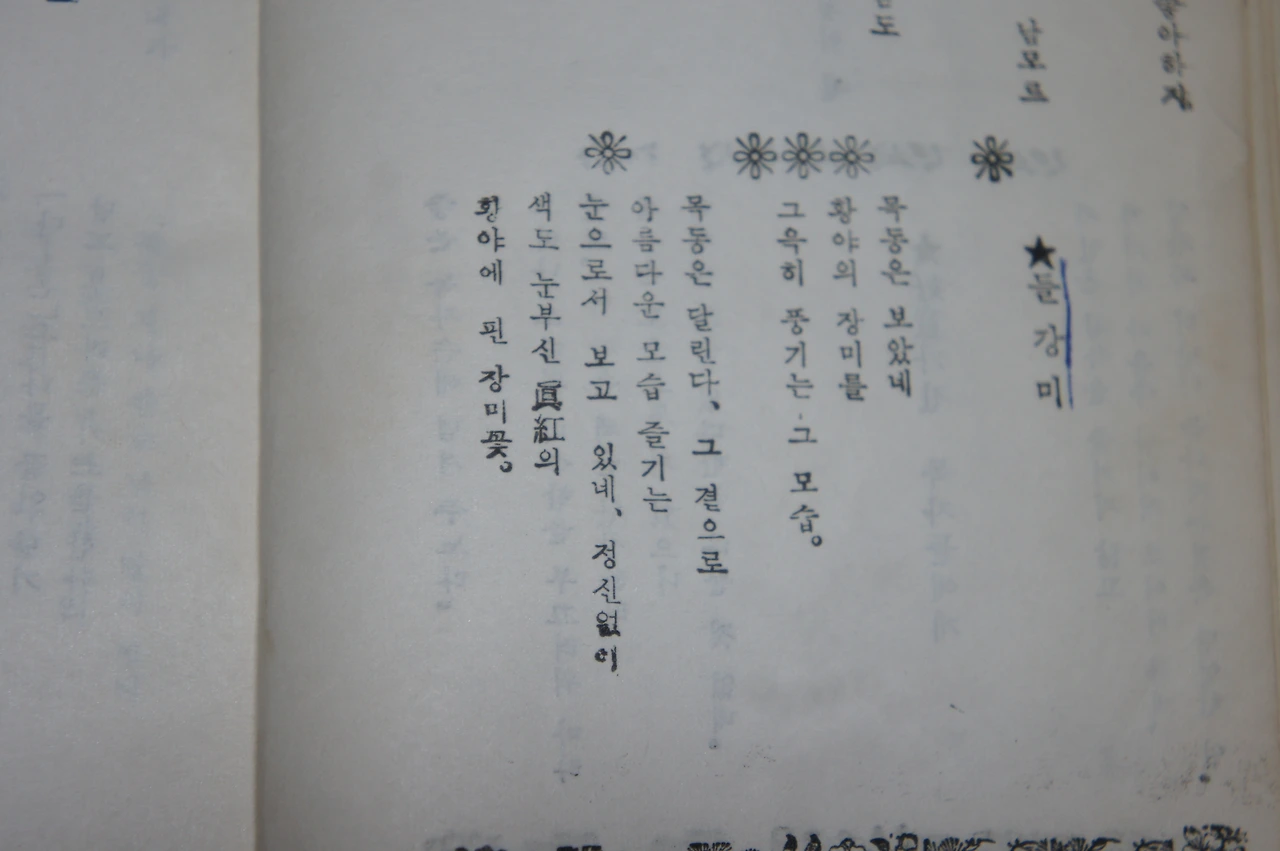 ★들강미
목동은 보았네
황야의 장미를
그윽히 풍기는 그 모습。
목동은 달린다、그 곁으로
아름다운 모습 즐기는
눈으로서 보고 있네、정신없이
색도 눈부신 眞紅의
황야에 핀 장미꽃。